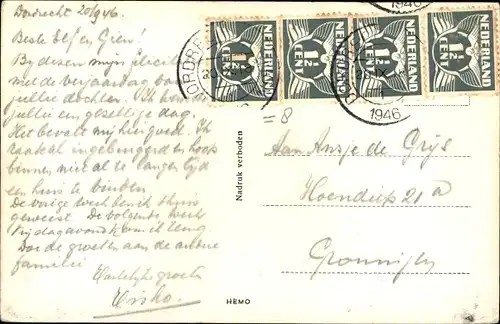 Dordrecht 20/9 '46
Beste Elf en Gien!
Bij dezen mijn felici
met de verjaardag van
jullie dochter. Ik hoop
jullie een gezellige dag.
Het bevalt mij hier goed. Ik
raak al ingeburgerd en hoop
binnen niet al te langen tijd
een huis te vinden
De vorige week ben ik thuis
geweest. De volgende week
Vrijdagavond kom ik terug
Doe de groeten aan de andere
familie
Hartelijke groeten
NEDERLAND
1½
CENT
NEDERLAND
1½
CENT
NEDERLAND
1½
CENT
NEDERLAND
1½
CENT
DORDRE
1946
1946
=8
Nadruk verboden
Aan Ansje de Grijs
Hoendiep 21a
Groningen
HEMO